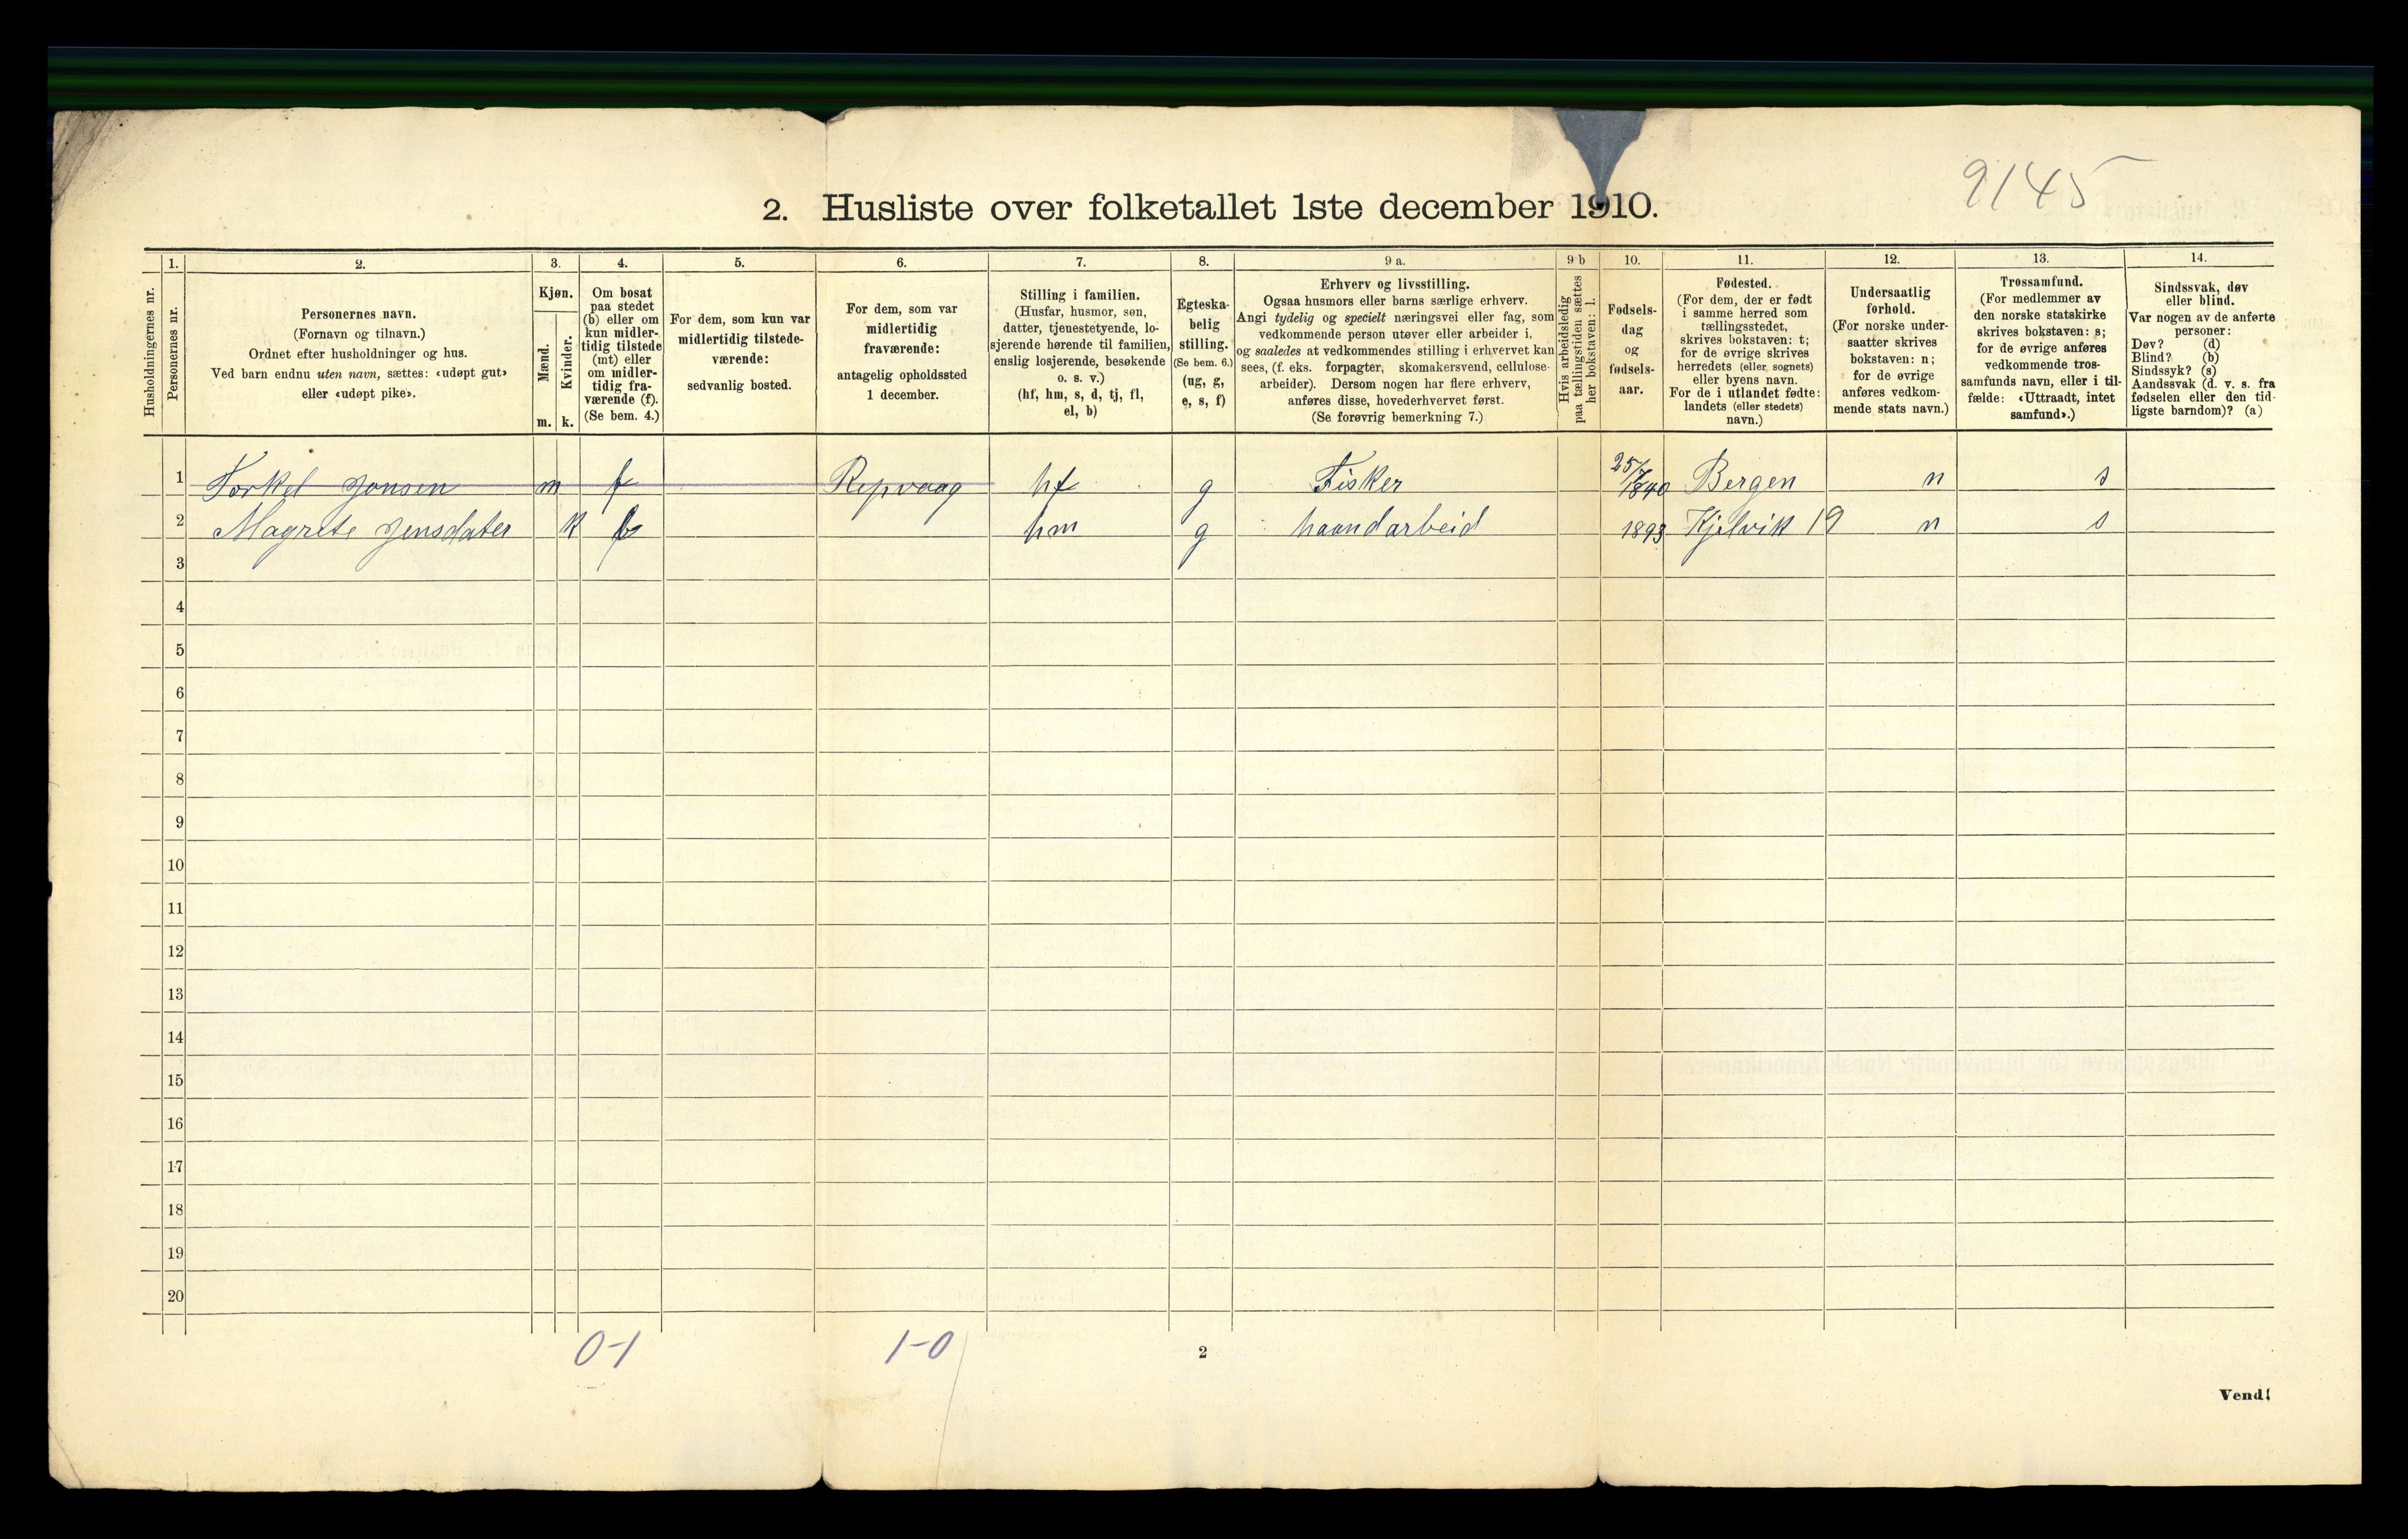 9145
2. Husliste over folketallet 1ste december 1910.
Husholdningernes nr.
1.
Personernes nr.
2.
Personernes navn.
(Fornavn og tilnavn.)
Ordnet efter husholdninger og hus.
Ved barn endnu uten navn, sættes: «udøpt gut»
eller «udøpt pike».
3.
Kjøn.
Mænd.
Kvinder.
m. k.
4.
Om bosat
paa stedet
(b) eller om
kun midler-
tidig tilstede
(mt) eller
om midler-
tidig fra-
værende (f).
(Se bem. 4.)
5.
For dem, som kun var
midlertidig tilstede-
værende:
sedvanlig bosted.
6.
For dem, som var
midlertidig
fraværende:
antagelig opholdssted
1 december.
7.
Stilling i familien.
(Husfar, husmor, søn,
datter, tjenestetyende, lo-
sjerende hørende til familien,
enslig losjerende, besøkende
o. s. v.)
(hf, hm, s, d, tj, fl,
el, b)
8.
Egteska-
belig
stilling.
(Se bem. 6.)
(ug, g,
e, s, f)
9 a.
Erhverv og livsstilling.
Ogsaa husmors eller barns særlige erhverv.
Angi tydelig og specielt næringsvei eller fag, som
vedkommende person utøver eller arbeider i,
og saaledes at vedkommendes stilling i erhvervet kan
sees, (f. eks. forpagter, skomakersvend, cellulose-
arbeider). Dersom nogen har flere erhverv,
anføres disse, hovederhvervet først.
(Se forøvrig bemerkning 7.)
9 b
Hvis arbeidsledig
paa tællingstiden sættes
her bokstaven: l.
10.
Fødsels-
dag
og
fødsels-
aar.
11.
Fødested.
(For dem, der er født
i samme herred som
tællingsstedet,
skrives bokstaven: t;
for de øvrige skrives
herredets (eller sognets)
eller byens navn.
For de i utlandet fødte:
landets (eller stedets)
navn.)
12.
Undersaatlig
forhold.
(For norske under-
saatter skrives
bokstaven: n;
for de øvrige
anføres vedkom-
mende stats navn.)
13.
Trossamfund.
(For medlemmer av
den norske statskirke
skrives bokstaven: s;
for de øvrige anføres
vedkommende tros-
samfunds navn, eller i til-
fælde: «Uttraadt, intet
samfund».)
14.
Sindssvak, døv
eller blind.
Var nogen av de anførte
personer:
Døv? (d)
Blind? (b)
Sindssyk? (s)
Aandssvak (d. v. s. fra
fødselen eller den tid-
ligste barndom)? (a)
1 Torkel Jonsen m f Repvaag hf g Fisker 25/7 1840 Bergen n s
2 Magrete Jensdater k hm g haandarbeid 1893 Kjelvik 19 n s
3
4
5
6
7
8
9
10
11
12
13
14
15
16
17
18
19
20
0-1 1-0
2
Vend!